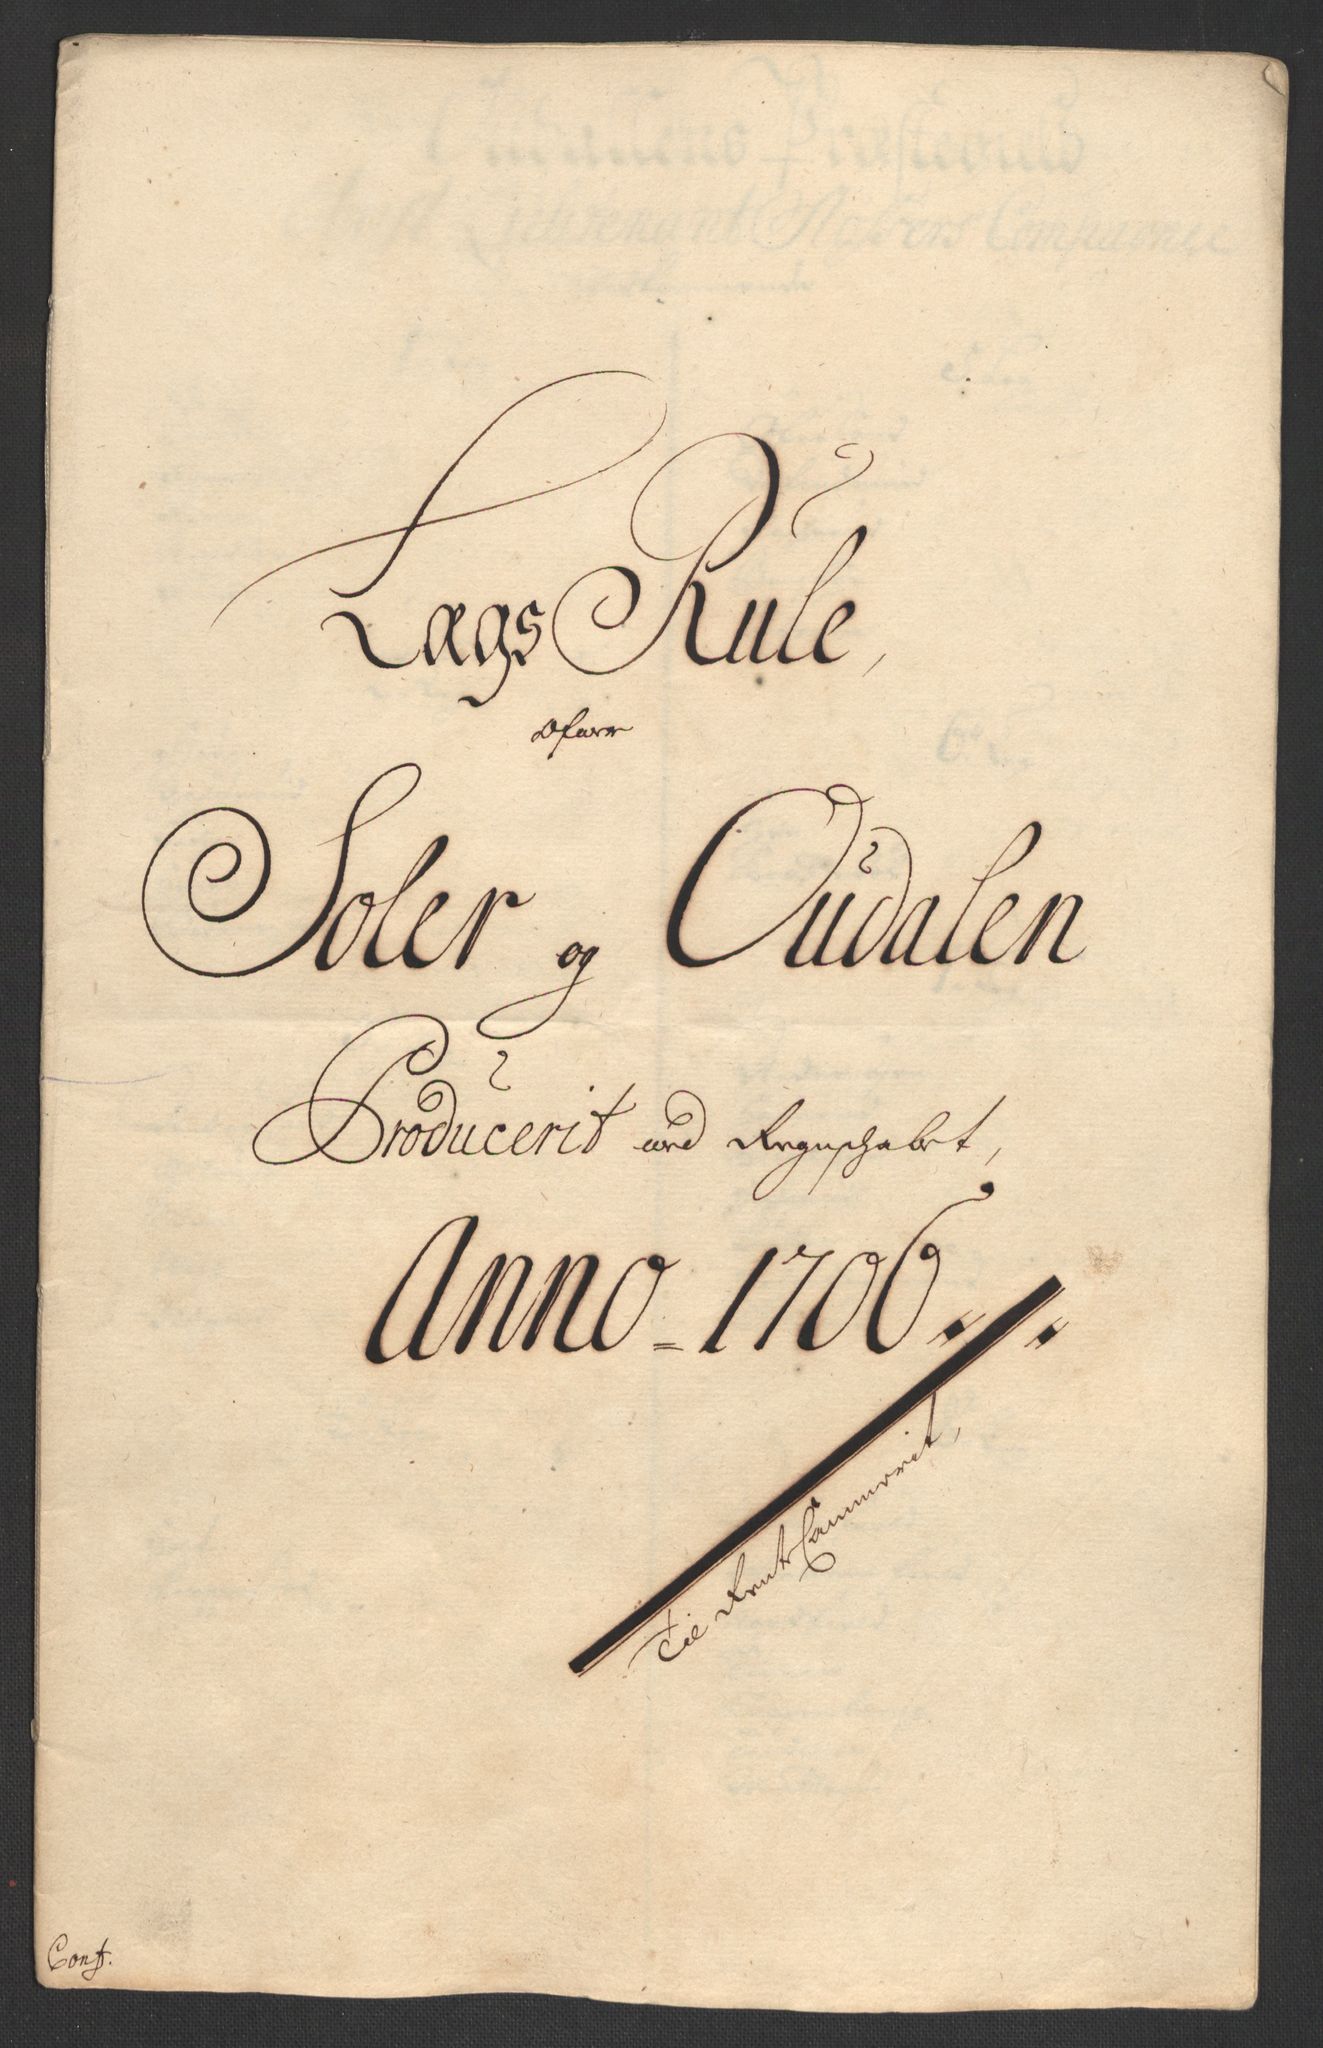 Lægs Rule,
ofver
Soler og Oudalen
Producerit ved Regnschabet,
Anno = 1706
Til Rente Cammerit,
Conf.